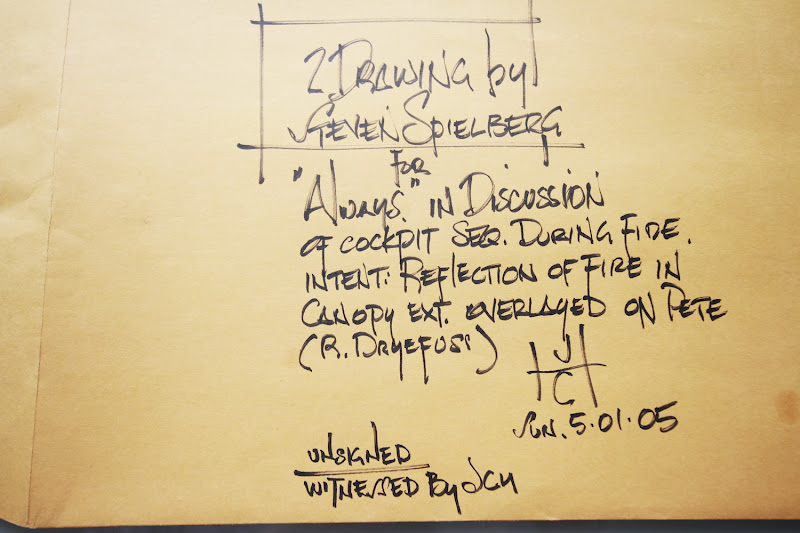 2 Drawing by
Steven Spielberg
for
"Always." in Discussion
of cockpit seq. During Fire.
intent: Reflection of Fire in
Canopy ext. overlayed on Pete
(R. Dryefuss)
J
C
Sun. 5.01.05
unsigned
witnessed by JCH